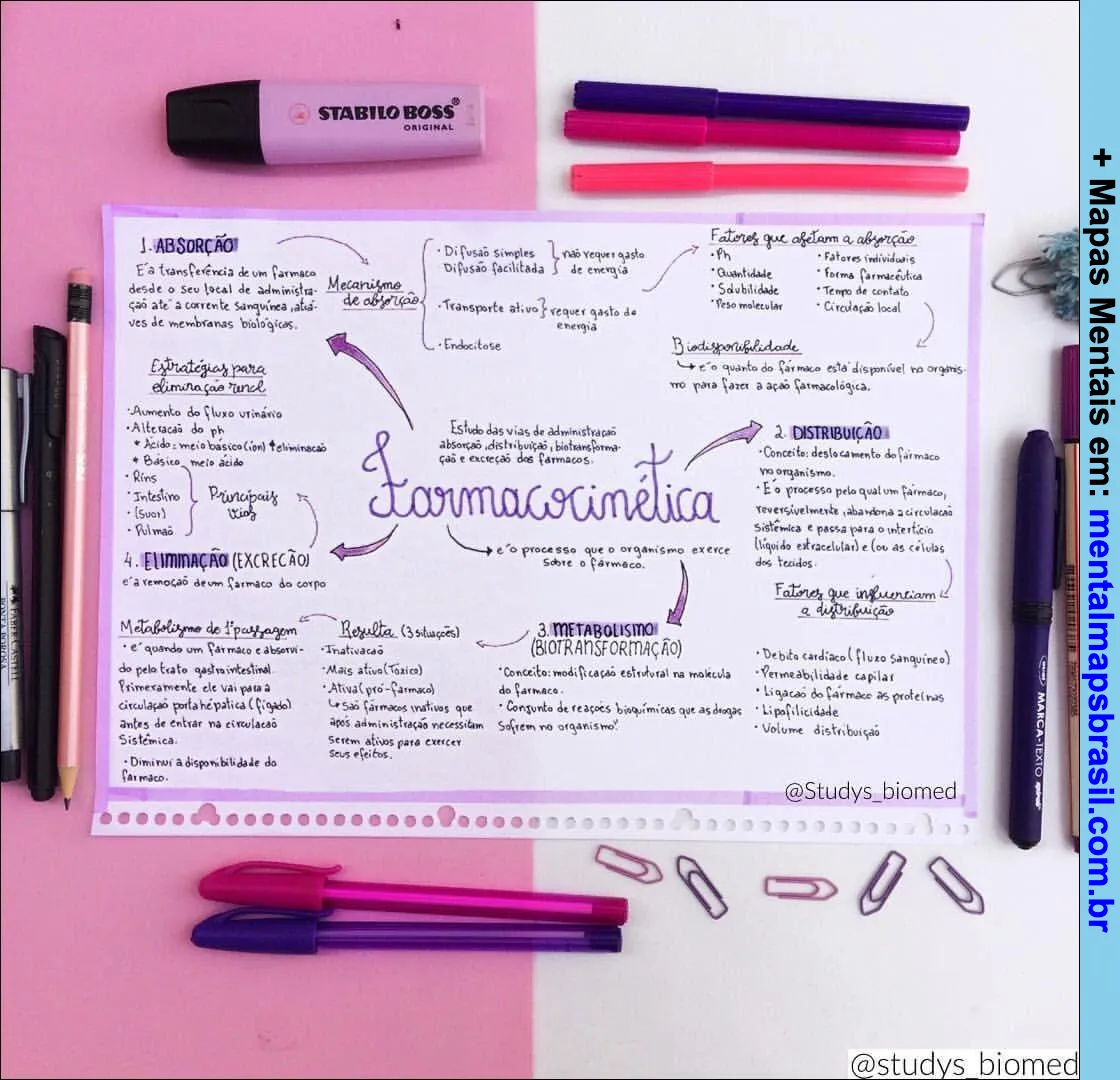 STABILO BOSS®
ORIGINAL
1. ABSORÇÃO
E' a transferência de um farmaco
desde o seu local de administra-
ção ate' a corrente sanguínea, atra-
ves de membranas biológicas.
Mecanismo
de absorção
• Difusão simples
Difusão facilitada
não requer gasto
de energia
• Transporte ativo
requer gasto de
energia
• Endocitose
Fatores que afetam a absorção
• Ph
• Quantidade
• Solubilidade
• Peso molecular
• Fatores individuais
• Forma farmacêutica
• Tempo de contato
• Circulação local
Biodisponibilidade
e' o quanto do fármaco está disponível no organis-
mo para fazer a ação farmacológica.
Estratégias para
eliminação renal
• Aumento do fluxo urinário
• Alteracão do ph
* Acido = meio básico (ion) ↑ eliminacão
* Básico_ meio ácido
• Rins
• Intestino
• (suor)
• Pulmão
Principais
vias
4. ELIMINAÇÃO (EXCRECÃO)
e' a remoção de um farmaco do corpo
Estudo das vias de administração
absorção, distribuição, biotransforma-
ção e excreção dos farmacos.
Farmacocinética
e' o processo que o organismo exerce
sobre o fármaco.
2. DISTRIBUIÇÃO
• Conceito: deslocamento do fármaco
no organismo.
• E' o processo pelo qual um fármaco,
reversivelmente, abandona a circulacão
sistêmica e passa para o interticio
(liquido extracelular) e (ou as células
dos tecidos.
Fatores que influenciam
a distribuição
• Debito cardíaco (fluxo sanguineo)
• Permeabilidade capilar
• Ligacão do fármaco as proteínas
• Lipofilicidade
• Volume distribuição
3. METABOLISMO
(BIOTRANSFORMAÇÃO)
• Conceito: modificação estrutural na molécula
do farmaco.
• Conjunto de reações bioquímicas que as drogas
sofrem no organismo".
Resulta (3 situações)
• Inativacão
• Mais ativo (Tóxico)
• Ativa (pró-farmaco)
São fármacos inativos que
após administração necessitam
serem ativos para exercer
seus efeitos.
Metabolismo de 1ª passagem
• e' quando um farmaco e absorvi-
do pelo trato gastrointestinal.
Primeramente ele vai para a
circulação porta hépatica (figado)
antes de entrar na circulacão
Sistêmica.
• Diminui a disponibilidade do
farmaco.
@Studys_biomed
FABER-CASTELL
MARCA-TEXTO
@studys_biomed
+ Mapas Mentais em: mentalmapsbrasil.com.br